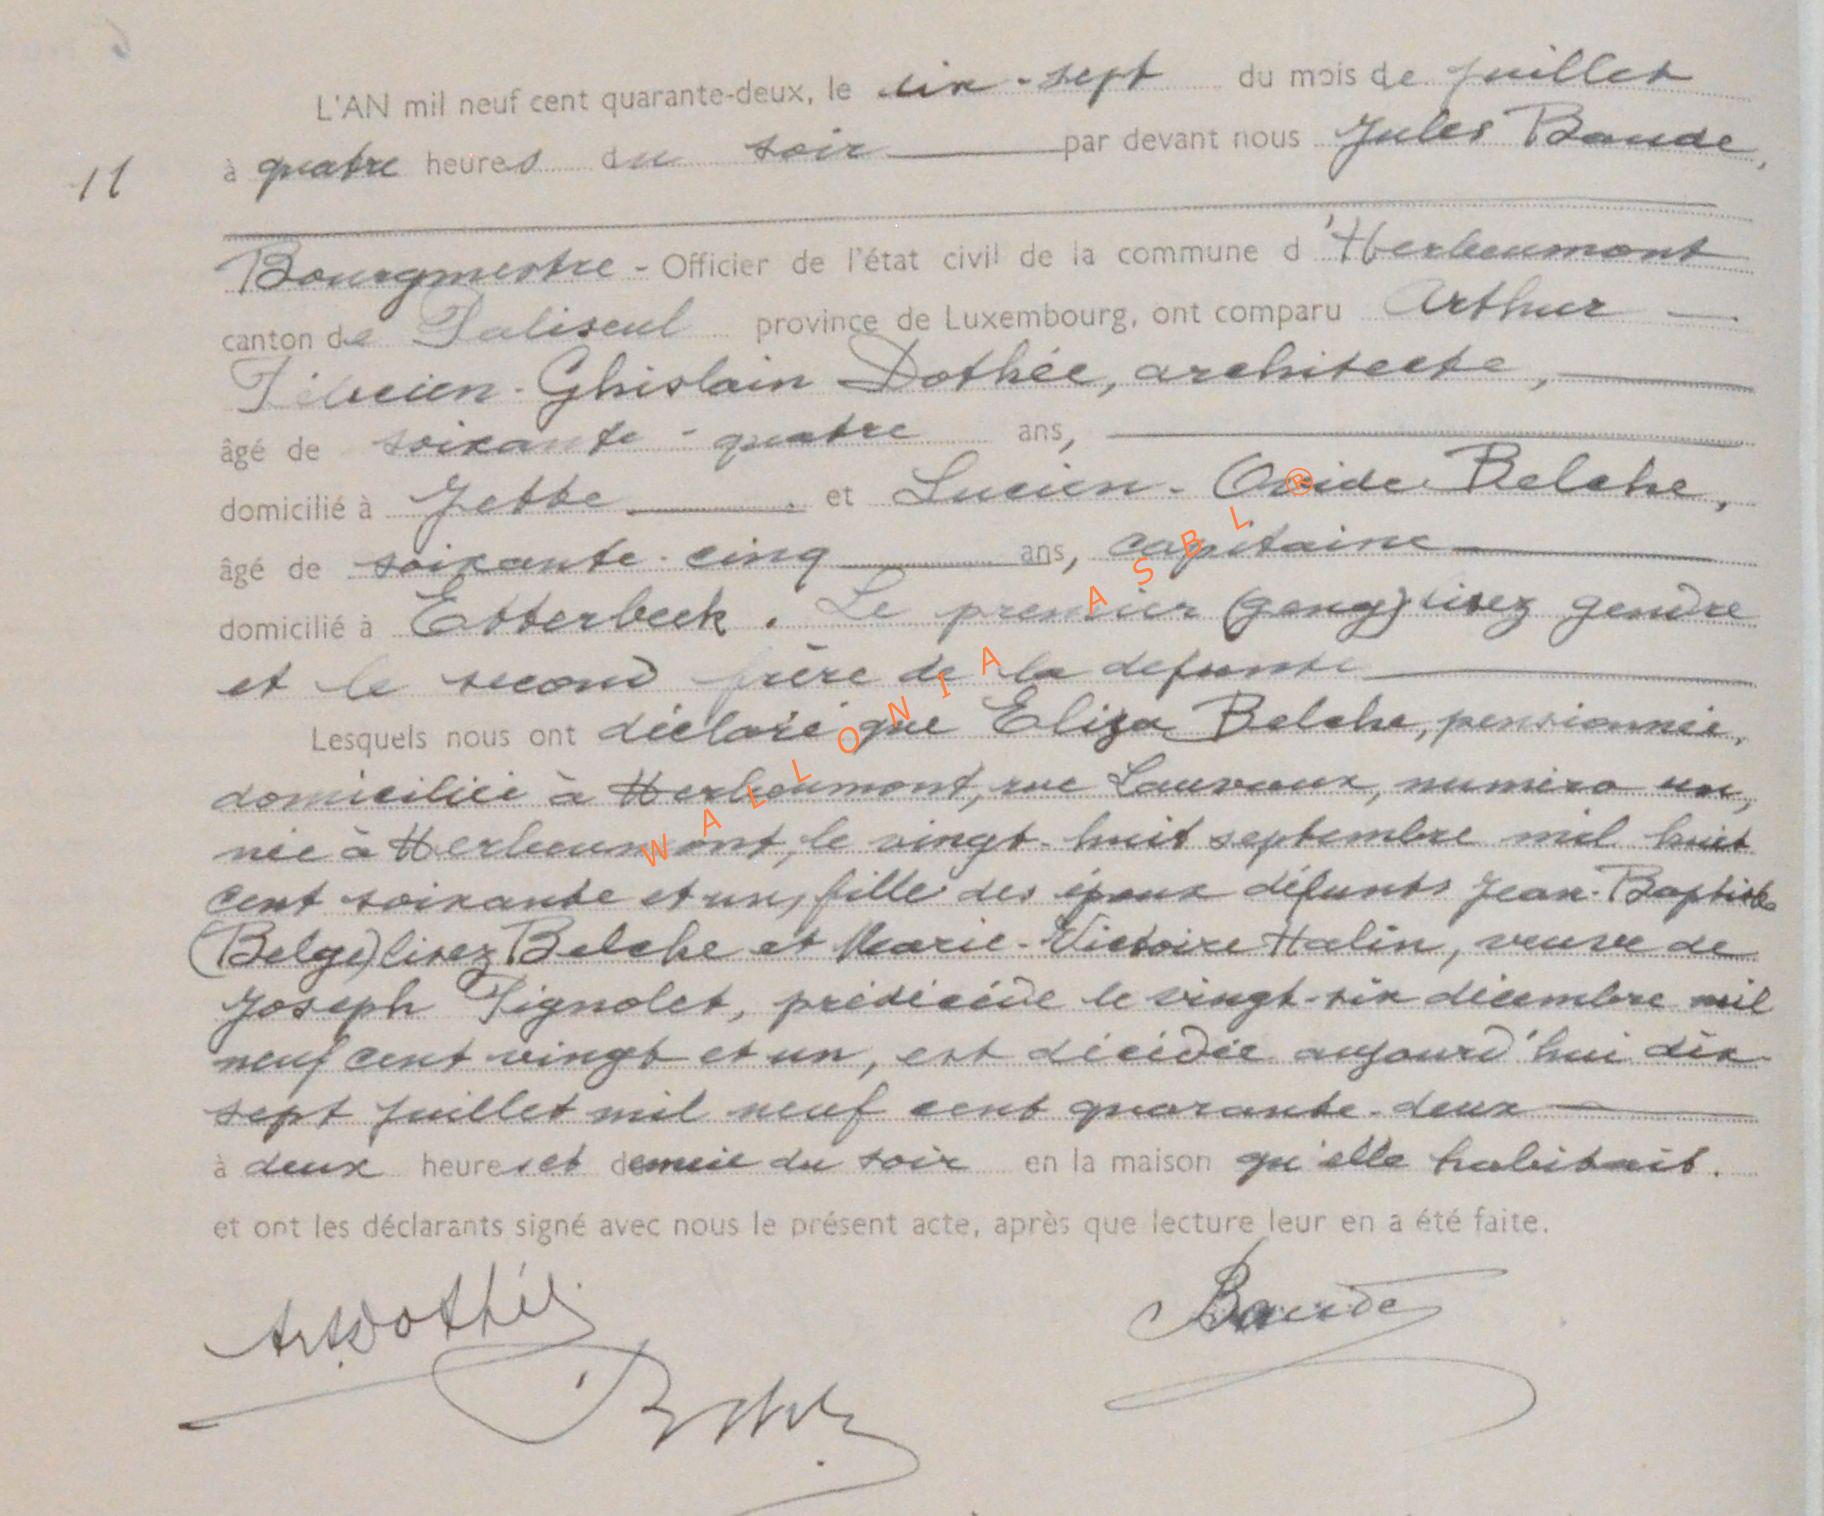 L'AN mil neuf cent quarante-deux, le dix-sept du mois de juillet
11
à quatre heures du soir par devant nous Jules Baude,
Bourgmestre - Officier de l'état civil de la commune d'Herbeumont
canton de Paliseul province de Luxembourg, ont comparu Arthur
Félicien-Ghislain Dothée, architecte,
âgé de soixante-quatre ans,
domicilié à Jette et Lucien-Ovide Belche,
âgé de soixante-cinq ans, capitaine
domicilié à Etterbeek. Le premier (geng) lisez gendre
et le second frère de la defunte
Lesquels nous ont déclaré que Eliza Belche, pensionnée,
domiciliée à Herbeumont, rue Lauvaux, numéro un,
née à Herbeumont, le vingt-huit septembre mil huit
cent soixante et un, fille des époux défunts Jean-Baptiste
(Belge) lisez Belche et Marie-Victoire Halin, veuve de
Joseph Pignolet, prédécédé le vingt-six décembre mil
neuf cent vingt et un, est décédée aujourd'hui dix-
sept juillet mil neuf cent quarante-deux
à deux heures et demie du soir en la maison qu'elle habitait.
et ont les déclarants signé avec nous le présent acte, après que lecture leur en a été faite.
Art. Dothée
Baude
WALLONIA ASBL®